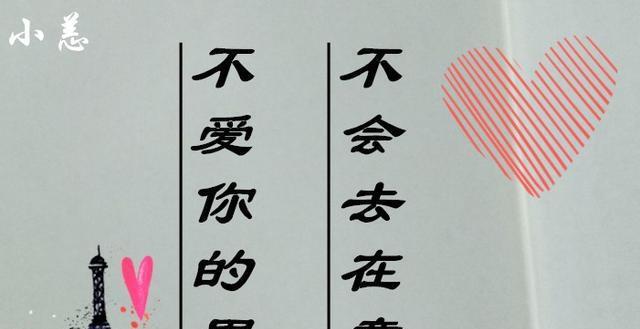 小恙
不爱你的
不会去在